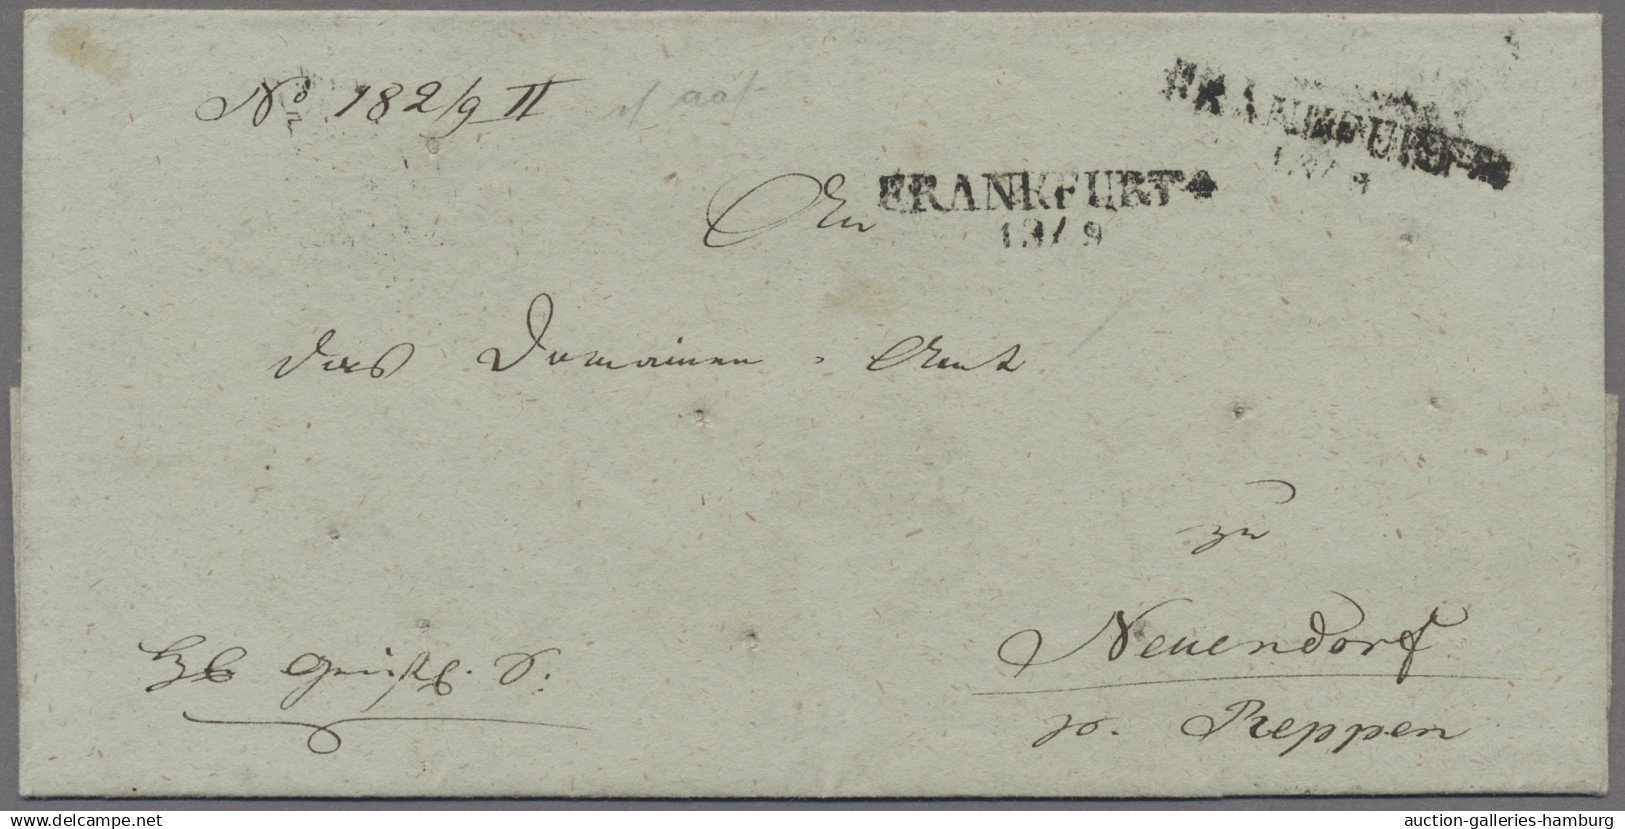 No 182/9 II
FRANKFURT
13/9
An
FRANKFURT
13/9
das Domainen-Amt
zu
Neuendorf
p. Reppen
delcampe.net
auction-galleries-hamburg